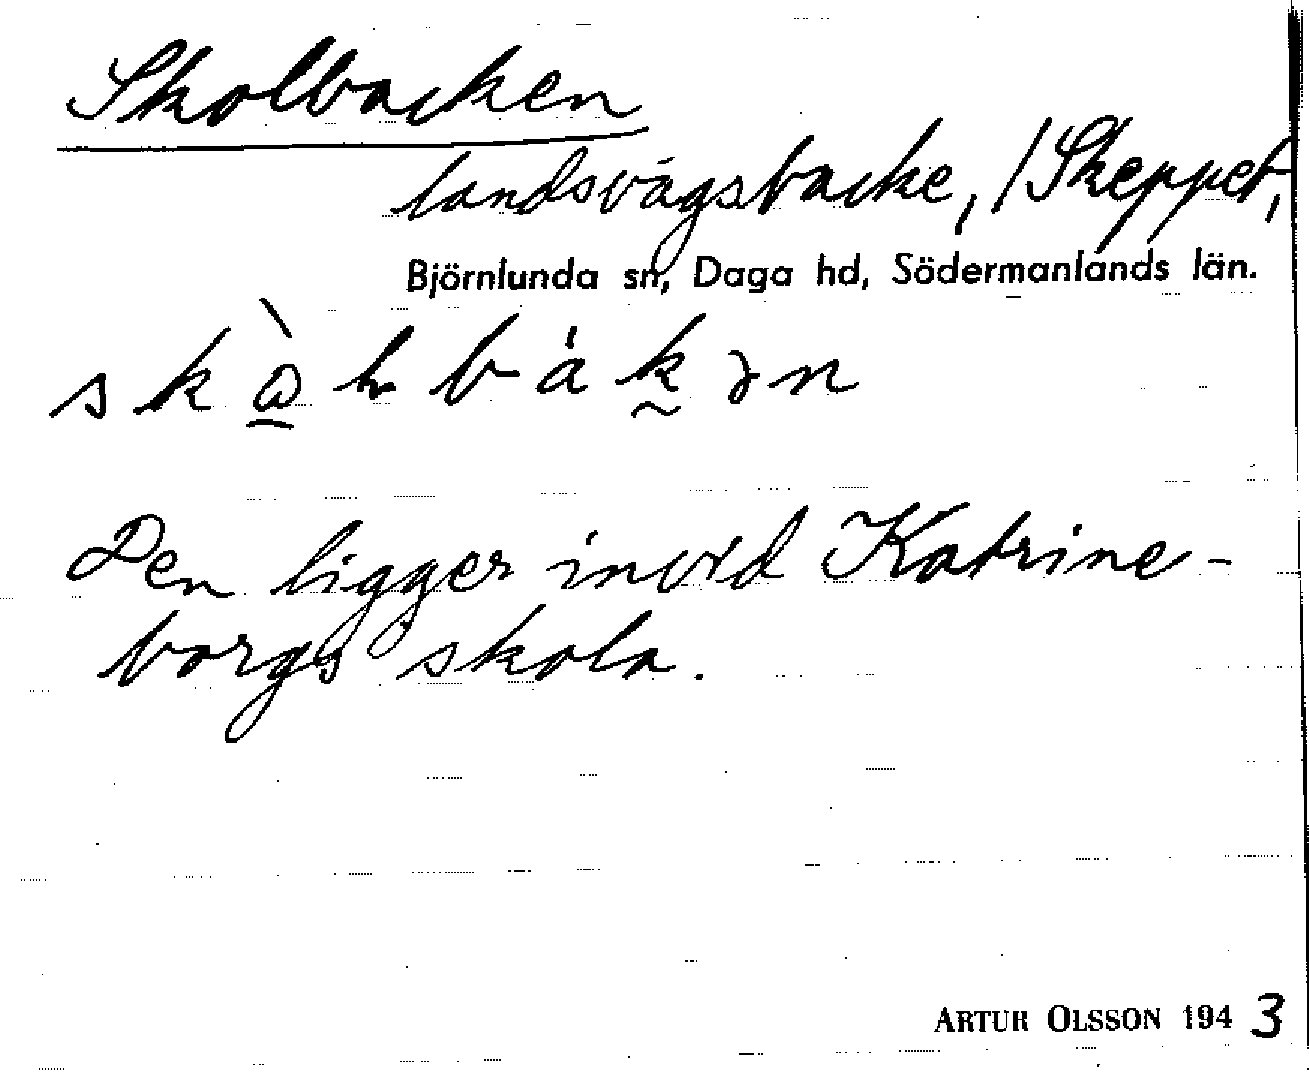 Skolbacken
landsvägsbacke, /Skeppet,
Björnlunda sn, Daga hd, Södermanlands län.
Den ligger invid Katrine-
borgs skola.
ARTUR OLSSON 1943